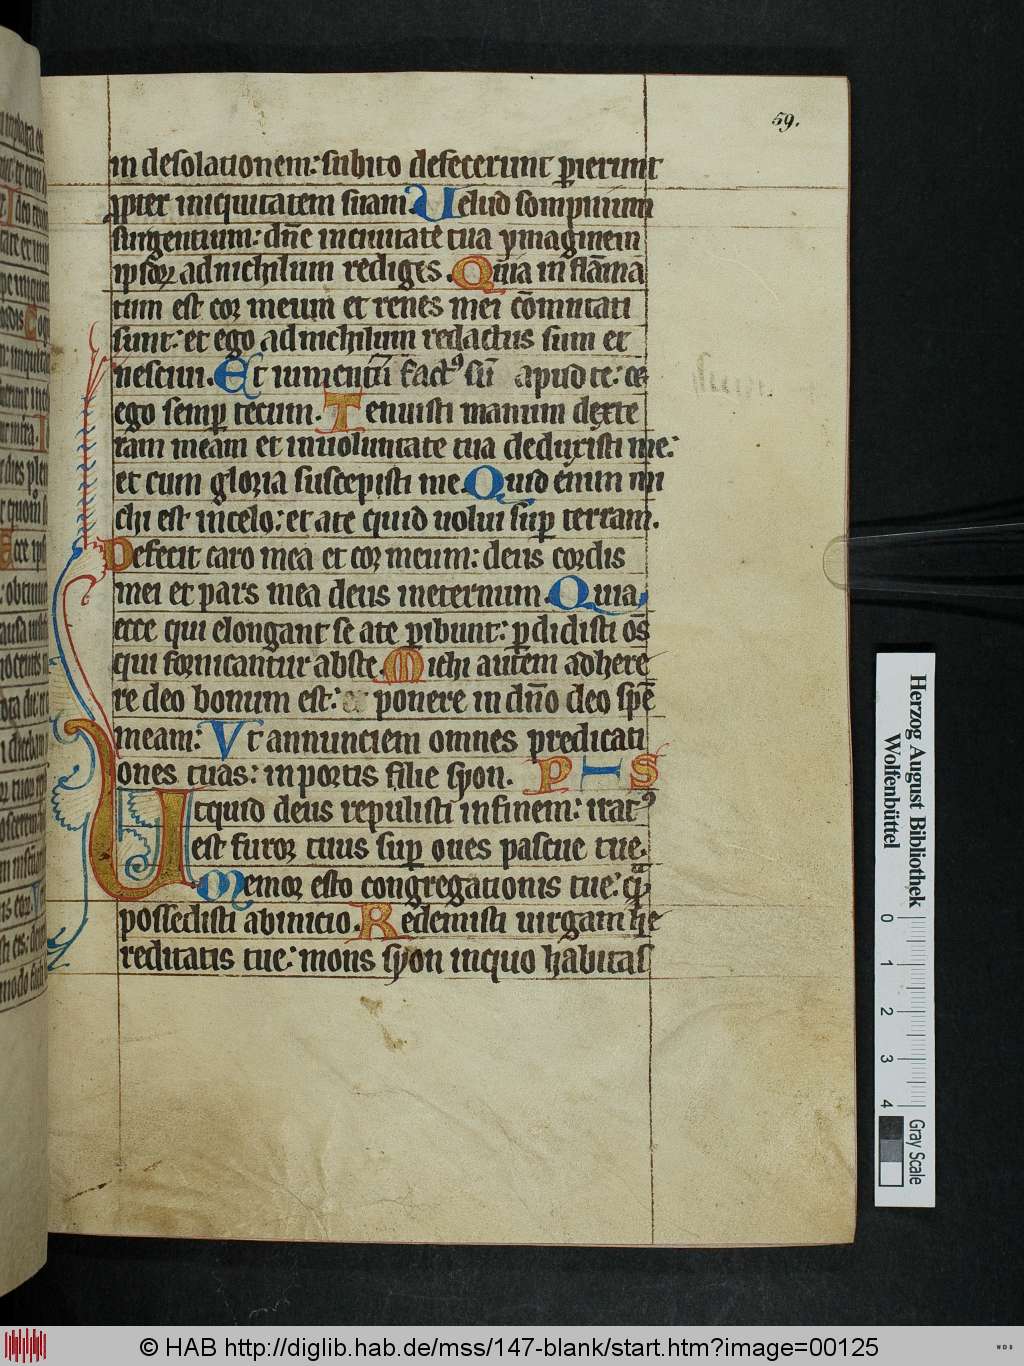 59.
in desolationem: subito defecerunt ꝑierunt
ꝓpter iniquitatem suam. Uelud sompnium
surgentium: dn̄e in ciuitate tua ymaginem
ipsoꝝ ad nichilum rediges. Quia inflāma
tum est cor meum et renes mei cōmutati
sunt: et ego ad nichilum redactus sum et
nesciui. Et iumentū factꝰ sū apud te: et
ego semꝑ tecum. Tenuisti manum dexte
ram meam et in uoluntate tua deduxisti me:
et cum gloria suscepisti me. Quid enim mi
chi est in celo: et a te quid uolui suꝑ terram.
Defecit caro mea et cor meum: deus cordis
mei et pars mea deus in eternum. Quia
ecce qui elongant se a te ꝑibunt: ꝑdidisti oēs
qui fornicantur abs te. Michi autem adhere
re deo bonum est: et ponere in dn̄o deo spē
meam: Vt annunciem omnes predicati
ones tuas: in portis filie syon. P I S
Utquid deus repulisti in finem: iratꝰ
est furor tuus suꝑ oues pascue tue.
Memor esto congregationis tue: qͣm
possedisti ab inicio. Redemisti uirgam he
reditatis tue: mons syon in quo habitas
Herzog August Bibliothek
Wolfenbüttel
0 1 2 3 4
Gray Scale
© HAB http://diglib.hab.de/mss/147-blank/start.htm?image=00125